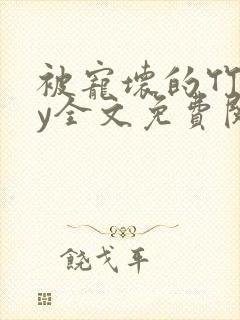 被寵壞的竹
y全文免費閱
饒戈平